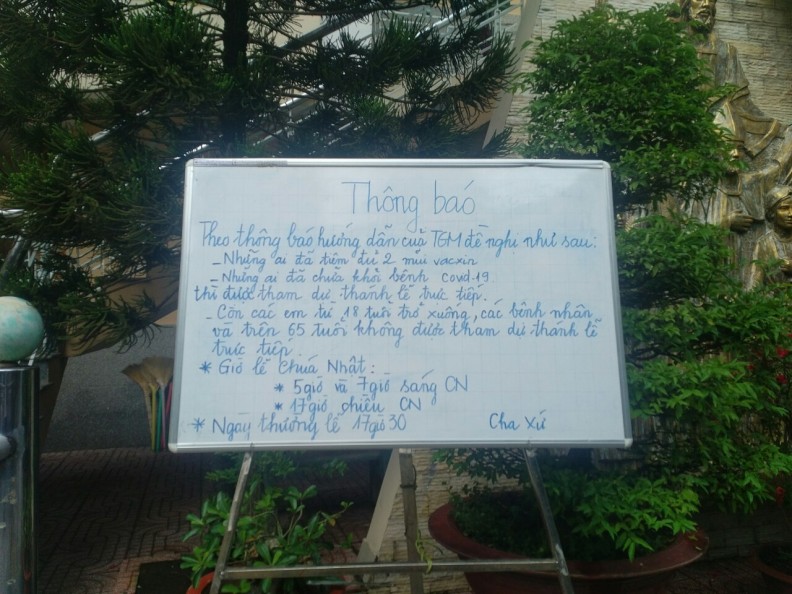 Thông báo
Theo thông báo hướng dẫn của TGM đề nghị như sau:
_ Những ai đã tiêm đủ 2 mũi vacxin
_ Những ai đã chữa khỏi bệnh covd-19.
thì được tham dự thánh lễ trực tiếp.
_ Còn các em từ 18 tuổi trở xuống, các bệnh nhân
và trên 65 tuổi không được tham dự thánh lễ
trực tiếp.
* Giờ lễ Chúa Nhật:
* 5giờ và 7giờ sáng CN
* 17giờ chiều CN
* Ngày thường lễ 17giờ30 Cha Xứ